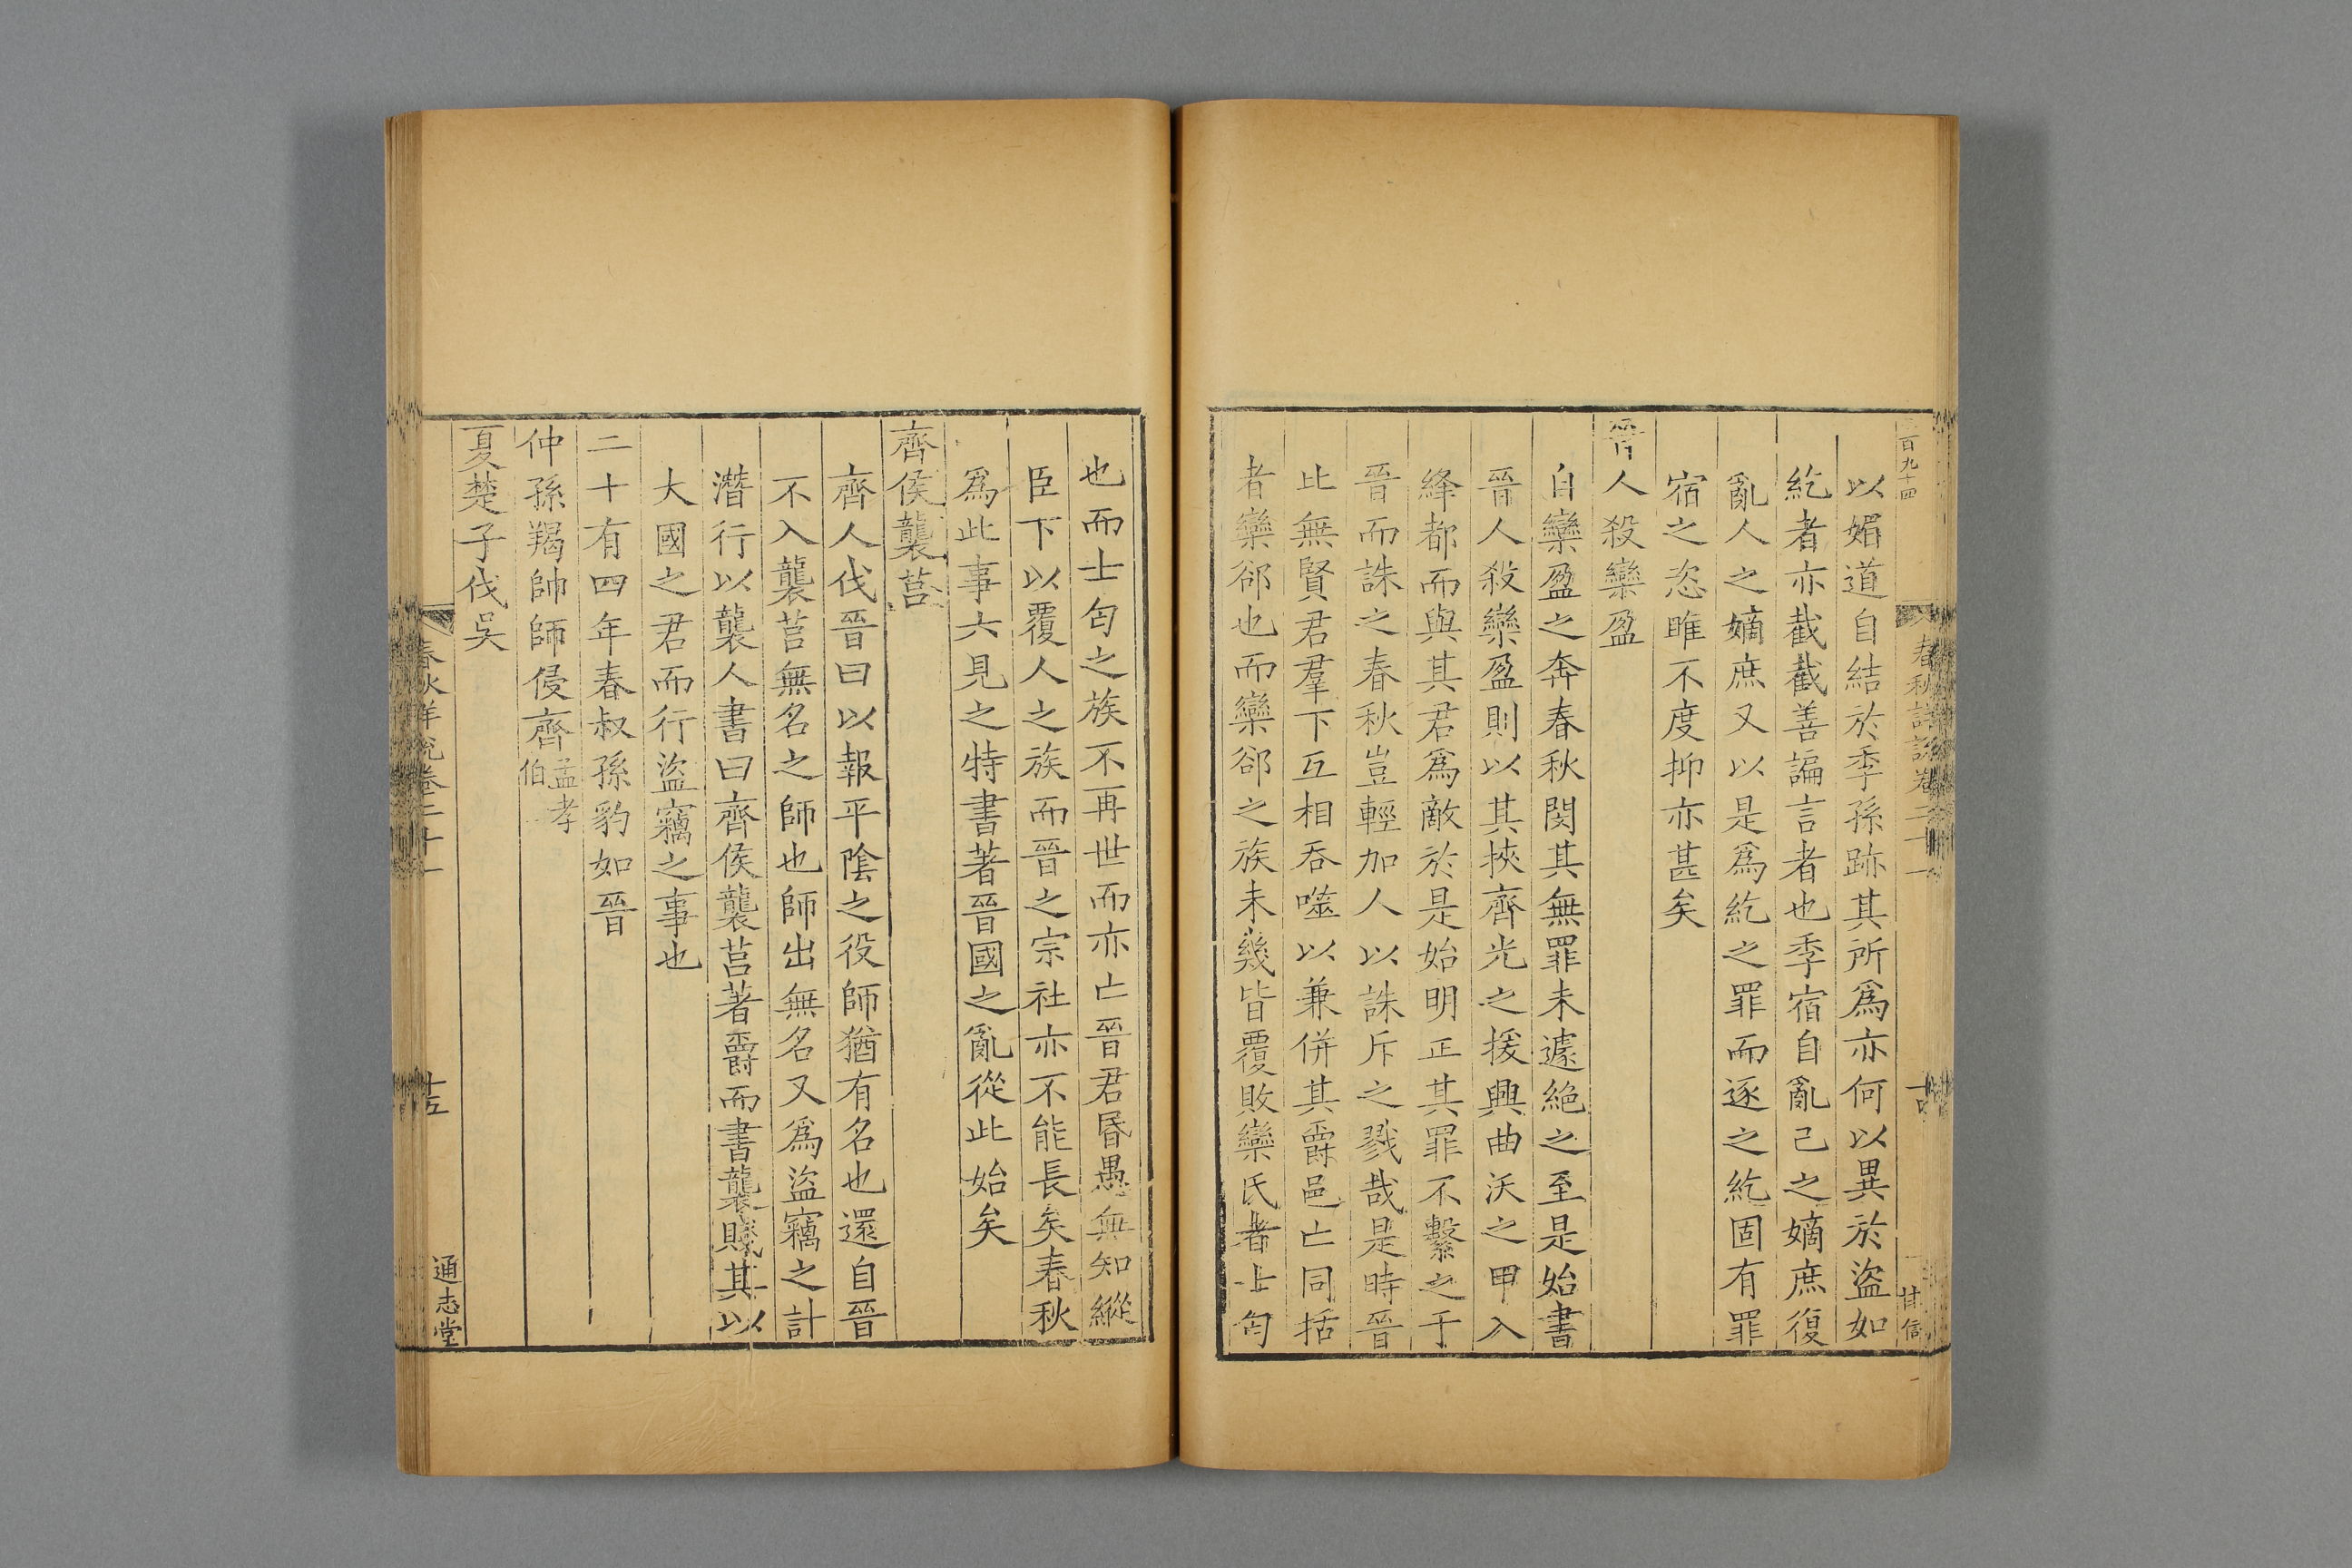 百九十四
春秋詳說卷二十一
以媚道自結於季孫跡其所爲亦何以異於盜如
紇者亦截截善諞言者也季宿自亂己之嫡庶復
亂人之嫡庶又以是爲紇之罪而逐之紇固有罪
宿之恣睢不度抑亦甚矣
晉人殺欒盈
自欒盈之奔春秋閔其無罪未遽絕之至是始書
晉人殺欒盈則以其挾齊光之援興曲沃之甲入
絳都而與其君爲敵於是始明正其罪不繫之于
晉而誅之春秋豈輕加人以誅斥之戮哉是時晉
此無賢君羣下互相吞噬以兼併其爵邑亡同括
者欒郤也而欒郤之族未幾皆覆敗欒氏者士匄
也而士匄之族不再世而亦亡晉君昬愚無知縱
臣下以覆人之族而晉之宗社亦不能長矣春秋
爲此事六見之特書著晉國之亂從此始矣
齊侯襲莒
齊人伐晉曰以報平陰之役師猶有名也還自晉
不入襲莒無名之師也師出無名又爲盜竊之計
潛行以襲人書曰齊侯襲莒著爵而書襲賤其以
大國之君而行盜竊之事也
二十有四年春叔孫豹如晉
仲孫羯帥師侵齊孟孝伯
夏楚子伐吳
春秋詳說卷二十一
十五
通志堂